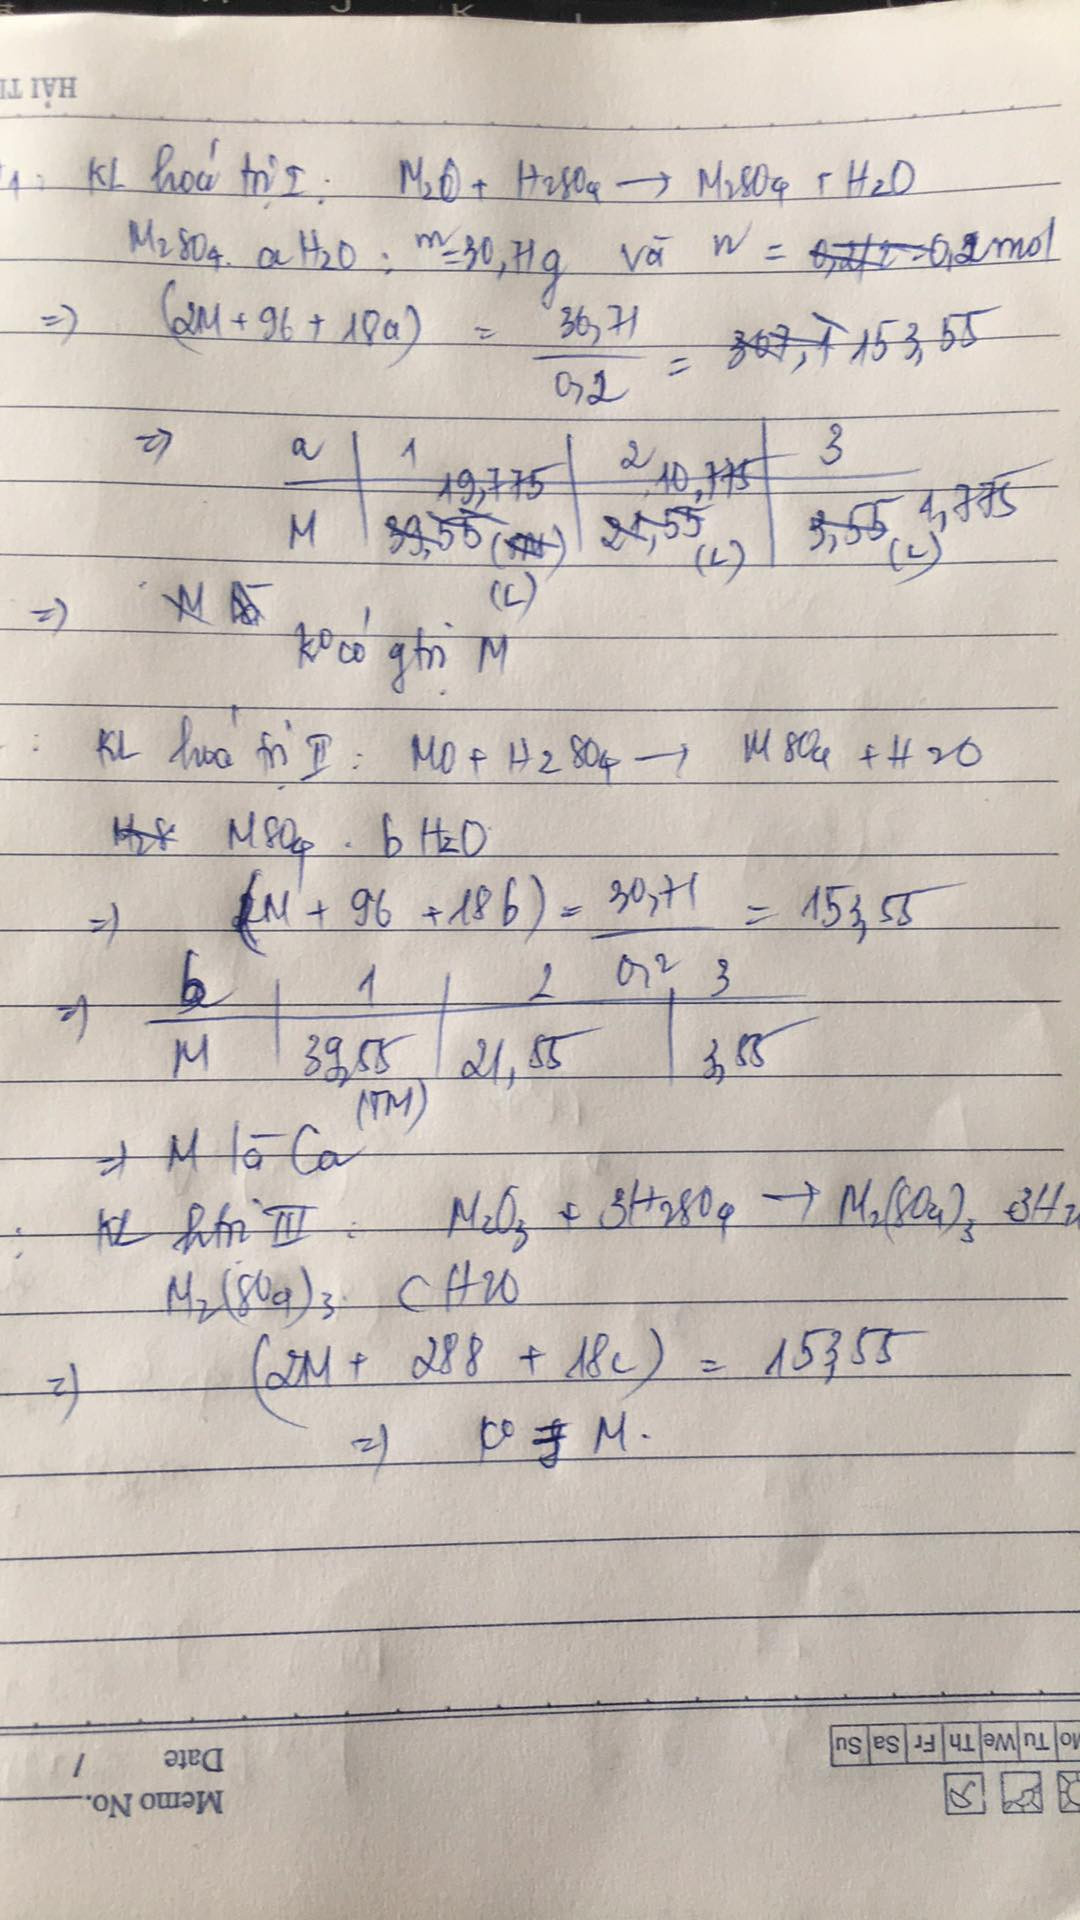 HẢI T
1: KL hoá trị I: M2O + H2SO4 → M2SO4 + H2O
M2SO4. aH2O: m=30,71g và n = 0,2mol
=> (2M + 96 + 18a) = 30,71 / 0,2 = 307,1 153,55
=> a | 1 | 2 | 3
19,775 10,775
M | 39,55 (TM) | 21,55 (L) | 3,55 1,775 (L)
(L)
=> M là
ko có gtrị M
: KL hoá trị II: MO + H2SO4 → MSO4 + H2O
H28 MSO4 . bH2O
=> (M + 96 + 18b) = 30,71 / 0,2 = 153,55
=> b | 1 | 2 | 3
M | 39,55 | 21,55 | 3,55
(TM)
=> M là Ca
: KL htrị III: M2O3 + 3H2SO4 → M2(SO4)3 + 3H2
M2(SO4)3. cH2O
=> (2M + 288 + 18c) = 153,55
=> ko M.
Mo Tu We Th Fr Sa Su
Date /
Memo No.